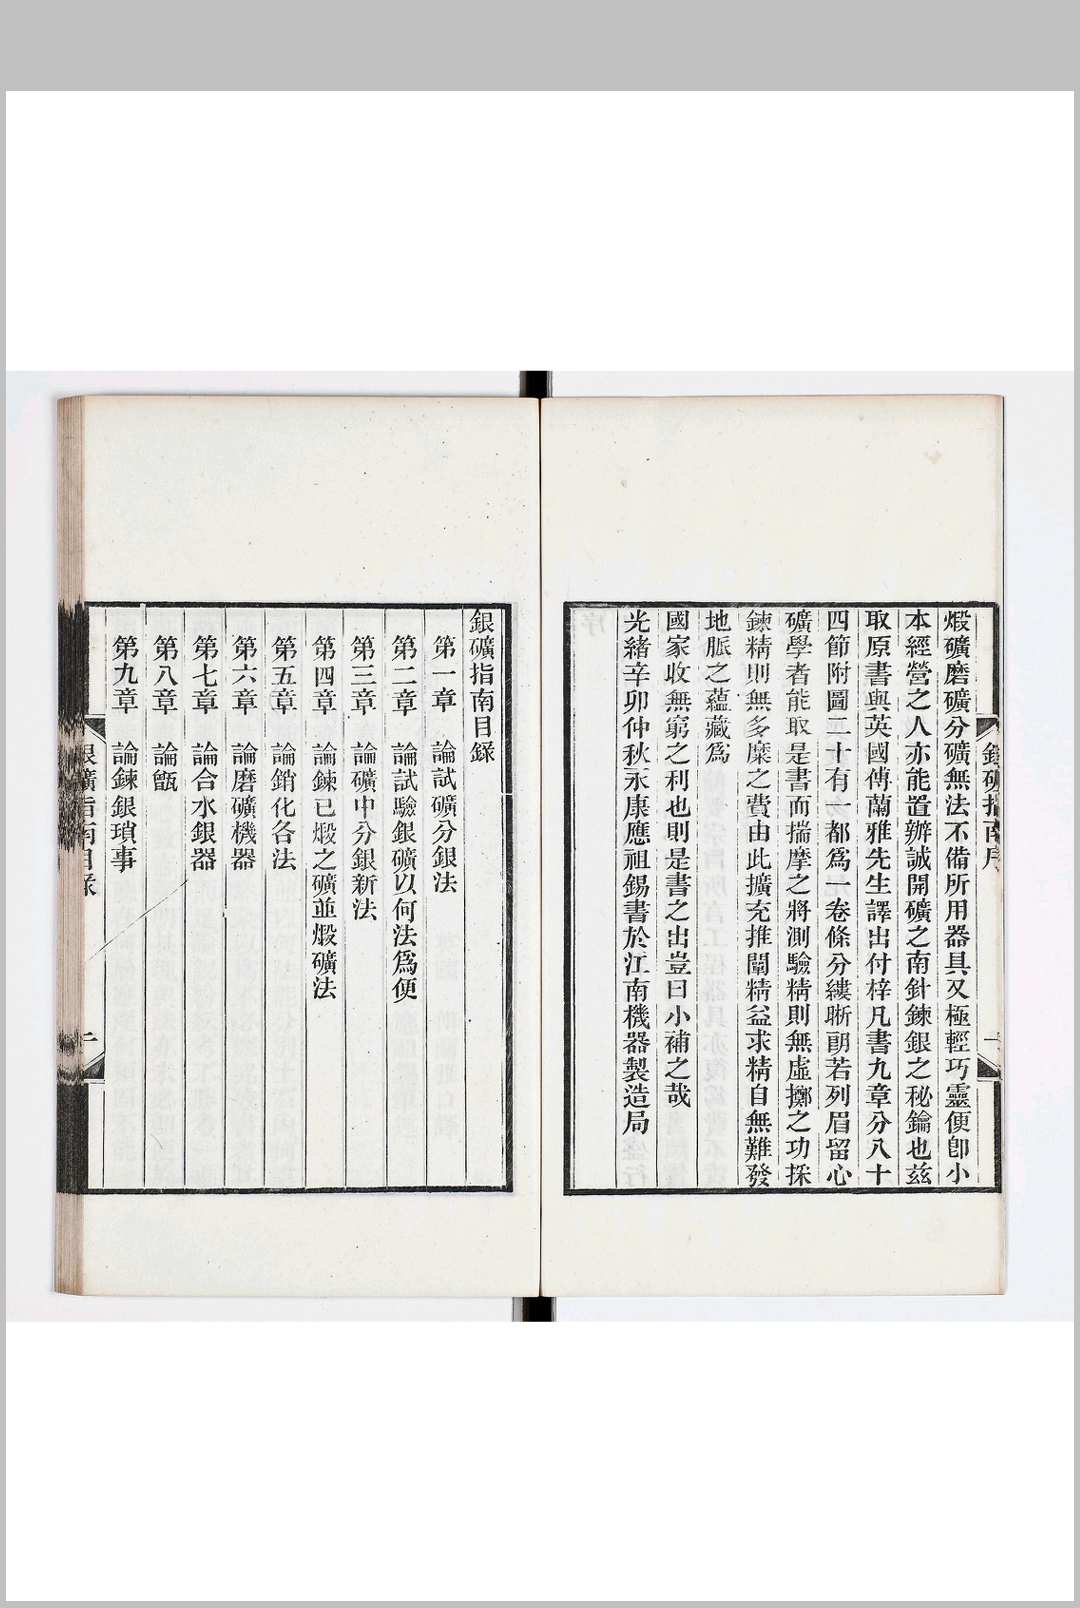 煅礦磨礦分礦無法不備所用器具又極輕巧靈便卽小
本經營之人亦能置辦誠開礦之南針鍊銀之秘鑰也茲
取原書與英國傅蘭雅先生譯出付梓凡書九章分八十
四節附圖二十有一都爲一卷條分縷晰朗若列眉留心
礦學者能取是書而揣摩之將測驗精則無虛擲之功採
鍊精則無多糜之費由此擴充推闡精益求精自無難發
地脈之蘊藏爲
國家收無窮之利也則是書之出豈曰小補之哉
光緒辛卯仲秋永康應祖錫書於江南機器製造局
銀礦指南序
一
銀礦指南目錄
第一章 論試礦分銀法
第二章 論試驗銀礦以何法爲便
第三章 論礦中分銀新法
第四章 論鍊已煅之礦並煅礦法
第五章 論銷化各法
第六章 論磨礦機器
第七章 論合水銀器
第八章 論甑
第九章 論鍊銀瑣事
銀礦指南目錄
一